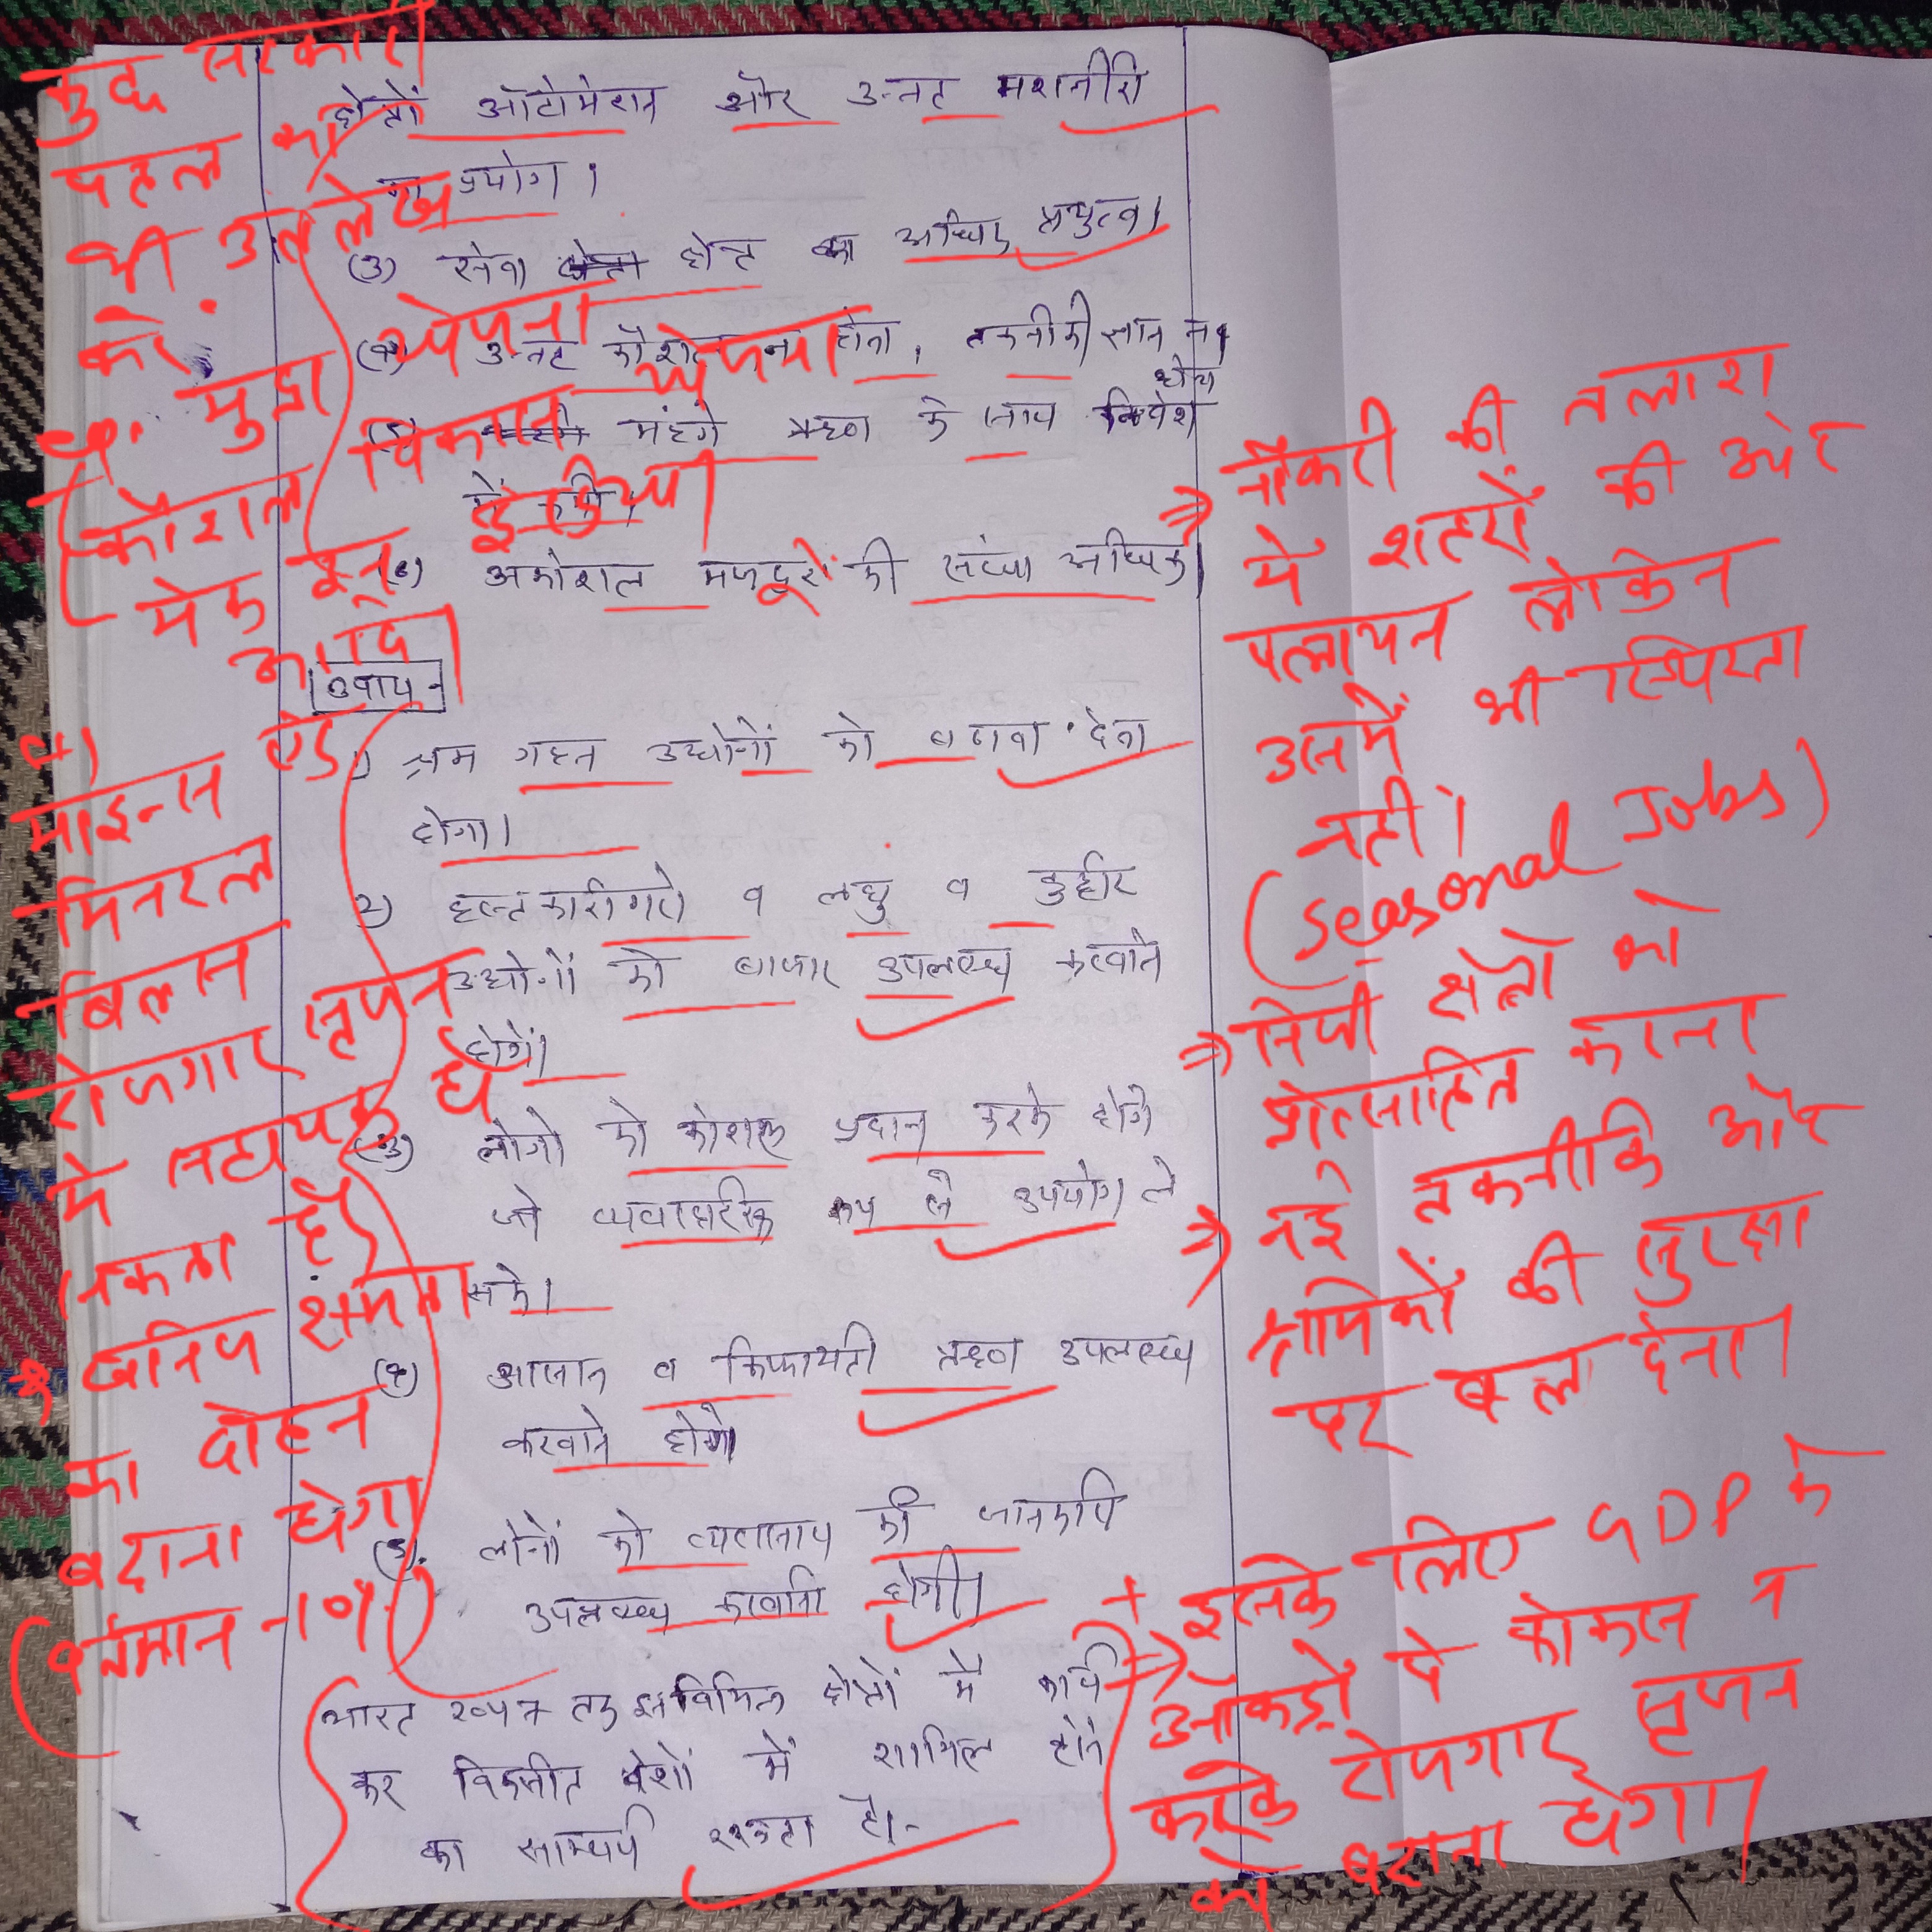 कुछ सरकारी
पहल का
भी उल्लेख
करें.
मुद्रा योजना
(कौशल विकास योजना
मेक इन इंडिया
आदि)
माइन्स एंड
मिनरल
बिल्स
रोजगार सृजन
में सहायक हो
सकता है।
* खनिज क्षमता
का दोहन
बढ़ाना होगा
(वर्तमान -10%)
क्षेत्रों ऑटोमेशन और उन्नत मशीनरी
प्रयोग।
(3) सेवा क्षेत्र का अधिक प्रभुत्व।
(4) उन्नत कौशल न होना, तकनीकी ज्ञान न
होना
(5) मंहगे ऋण के साथ निवेश
में कमी
(6) अकोशल मजदूरों की संख्या अधिक।
उपाय -
1) श्रम गहन उद्योगों को बढावा देना
होगा।
2) हस्तकारीगरो व लघु व कुटीर
उद्योगों को बाजार उपलब्ध करवाने
होगें।
(3) लोगो को कोशल प्रदान करके होगे
जो व्यवाहरिक रूप से उपयोग ले
सके।
(4) आसान व किफायती ऋण उपलब्ध
करवाने होगे
(5). लोगों को व्यवसाय की जानकारी
उपलब्ध करवानी होगी।
भारत 2047 तक इन विभिन्न क्षेत्रों में कार्य
कर विकसीत देशों में शामिल होने
का सामर्थ्य रखता है।-
⇒ नौकरी की तलाश
में शहरों की ओर
पलायन लेकिन
उसमें भी स्थिरता
नहीं।
(Seasonal Jobs)
⇒ निजी क्षेत्रों को
प्रोत्साहित करना
⇒ नई तकनीकि और
श्रमिकों की सुरक्षा
पर बल देना।
+ इसके लिए GDP के
⇒ आंकड़ों पे फोकस न
करके रोजगार सृजन
को बढ़ाना होगा।